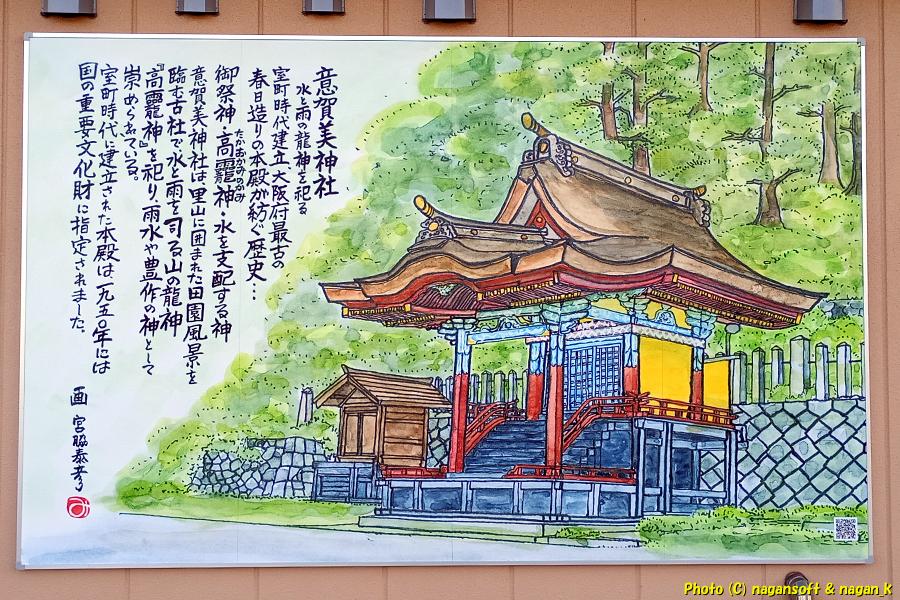 意賀美神社
水と雨の龍神を祀る
室町時代建立大阪府最古の
春日造りの本殿が紡ぐ歴史…
御祭神・高龗神・水を支配する神
たかおかみのかみ
意賀美神社は里山に囲まれた田園風景を
臨む古社で水と雨を司る山の龍神
『高龗神』を祀り、雨水や豊作の神として
崇められている。
室町時代に建立された本殿は一九五〇年には
国の重要文化財に指定されました。
画 宮脇泰彦
Photo (C) nagansoft & nagan_k